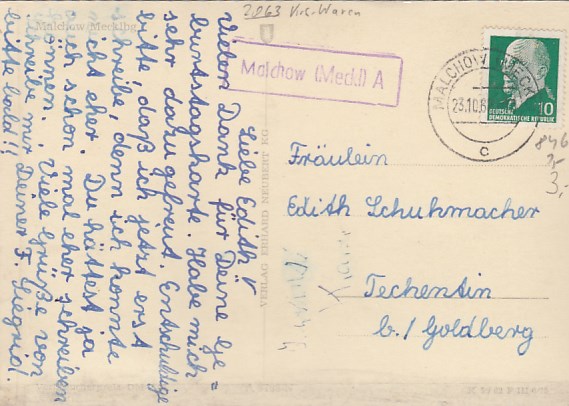 2063 Krs. Waren
Malchow/Mecklbg.
Malchow (Meckl) A
MALCHOW (MECKL)
23.10.6
c
10
DEUTSCHE
DEMOKRATISCHE REPUBLIK
846
3,-
3,-
Liebe Edith!
Vielen Dank für Deine Ge=
burtstagskarte. Habe mich
sehr dazu gefreut. Entschuldige
bitte, daß ich jetzt erst
schreibe, denn ich konnte
nicht eher. Du hättest ja
auch schon mal eher schreiben
können. Viele Grüße von
Deiner F. Siegrid.
schreibe mir
bitte bald!!
VERLAG ERHARD NEUBERT KG
Fräulein
Edith Schuhmacher
Techentin
b./Goldberg